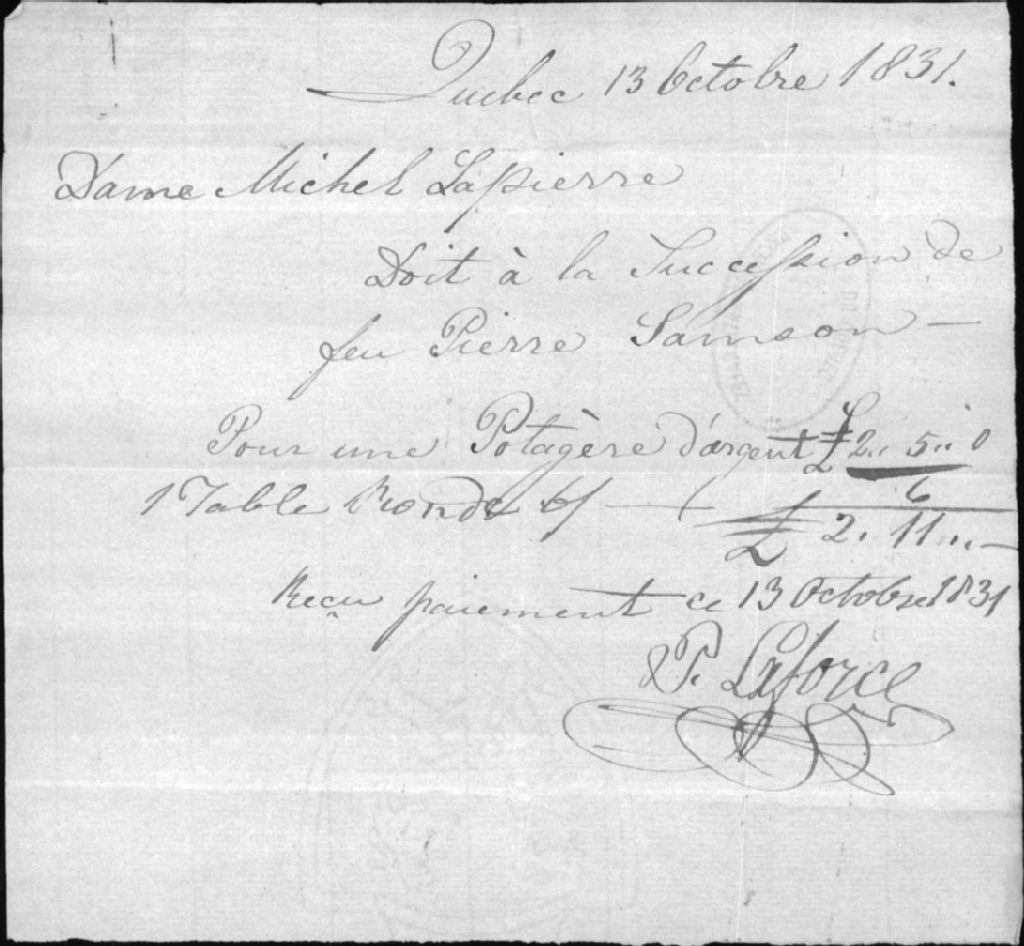 Quebec 13 Octobre 1831.
Dame Michel Lapierre
Doit à la Succession de
feu Pierre Samson —
Pour une Potagère d'argent £ 2,, 5,, 0
1 Table Ronde 6/ — 6
£ 2,, 11,, —
Reçu paiement ce 13 Octobre 1831
P. Laforce